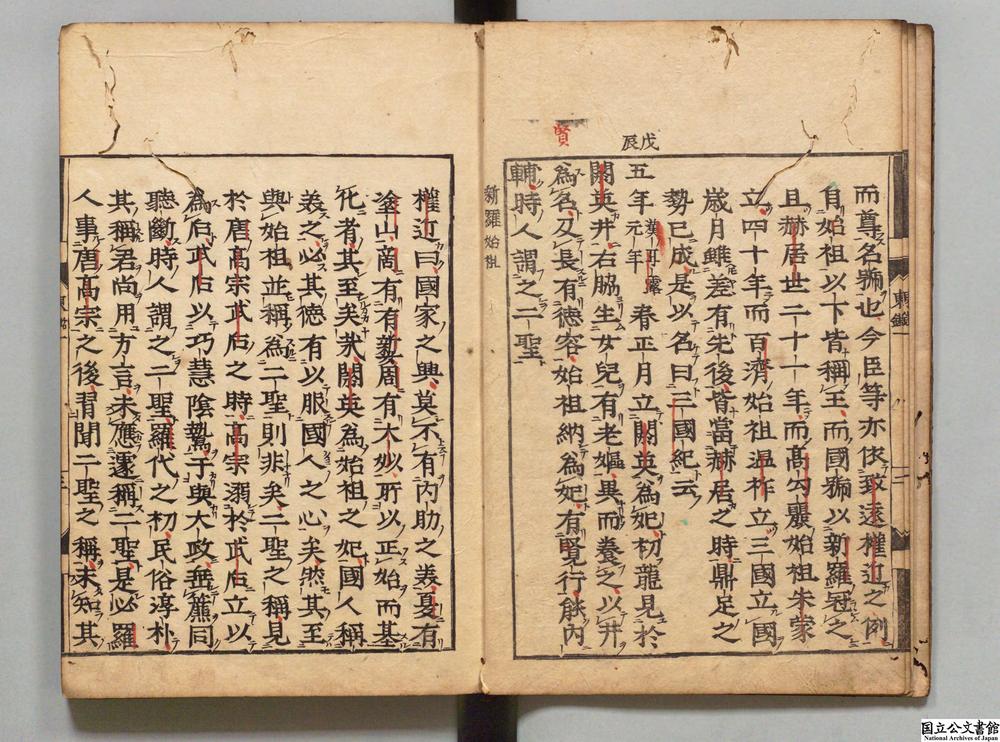 而尊名號也今臣等亦依致遠權近之例
自始祖以下皆稱王而國號以新羅冠之
且赫居世二十一年而髙勾麗始祖朱蒙
立四十年而百濟始祖温祚立三國立國
歳月雖差有先後皆當赫居之時鼎足之
勢已成是以名曰三國紀云
戊辰
五年漢哥露元年春正月立閼英為妃初龍見於
賢
閼英井右脇生女兒有老嫗異而養之以井
為名及長有徳容始祖納為妃有賢行能内
輔時人謂之二聖
新羅始祖
權近曰國家之興莫不有内助之義夏有
塗山啇有有㜪周有大姒所以正始而基
化者其至矣㢤閼英為始祖之妃國人稱
義之必其徳有以服國人之心矣然其至
與始祖並稱為二聖則非矣二聖之稱見
於唐髙宗武后之時髙宗溺於武后立以
為后武后以巧慧陰鷙于與大政無簾同
聽斷時人謂之二聖羅代之初民俗淳朴
其稱君尚用方言未應遽稱二聖是必羅
人事唐髙宗之後習聞二聖之稱未知其
東鑑
三
国立公文書館
National Archives of Japan